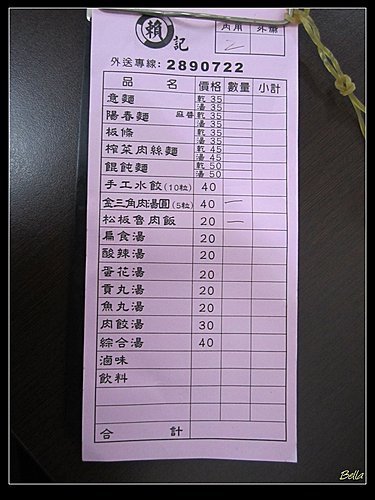 賴記
內用 外帶
外送專線: 2890722
品名 價格 數量 小計
意麵 乾 35
湯 35
陽春麵 麻醬 乾 35
湯 35
板條 乾 35
湯 35
榨菜肉絲麵 乾 45
湯 45
餛飩麵 乾 50
湯 50
手工水餃(10粒) 40
金三角肉湯圓(5粒) 40 一
松板魯肉飯 20 一
扁食湯 20
酸辣湯 20
蛋花湯 20
貢丸湯 20
魚丸湯 20
肉餃湯 30
綜合湯 40
滷味
飲料
合計
Bella